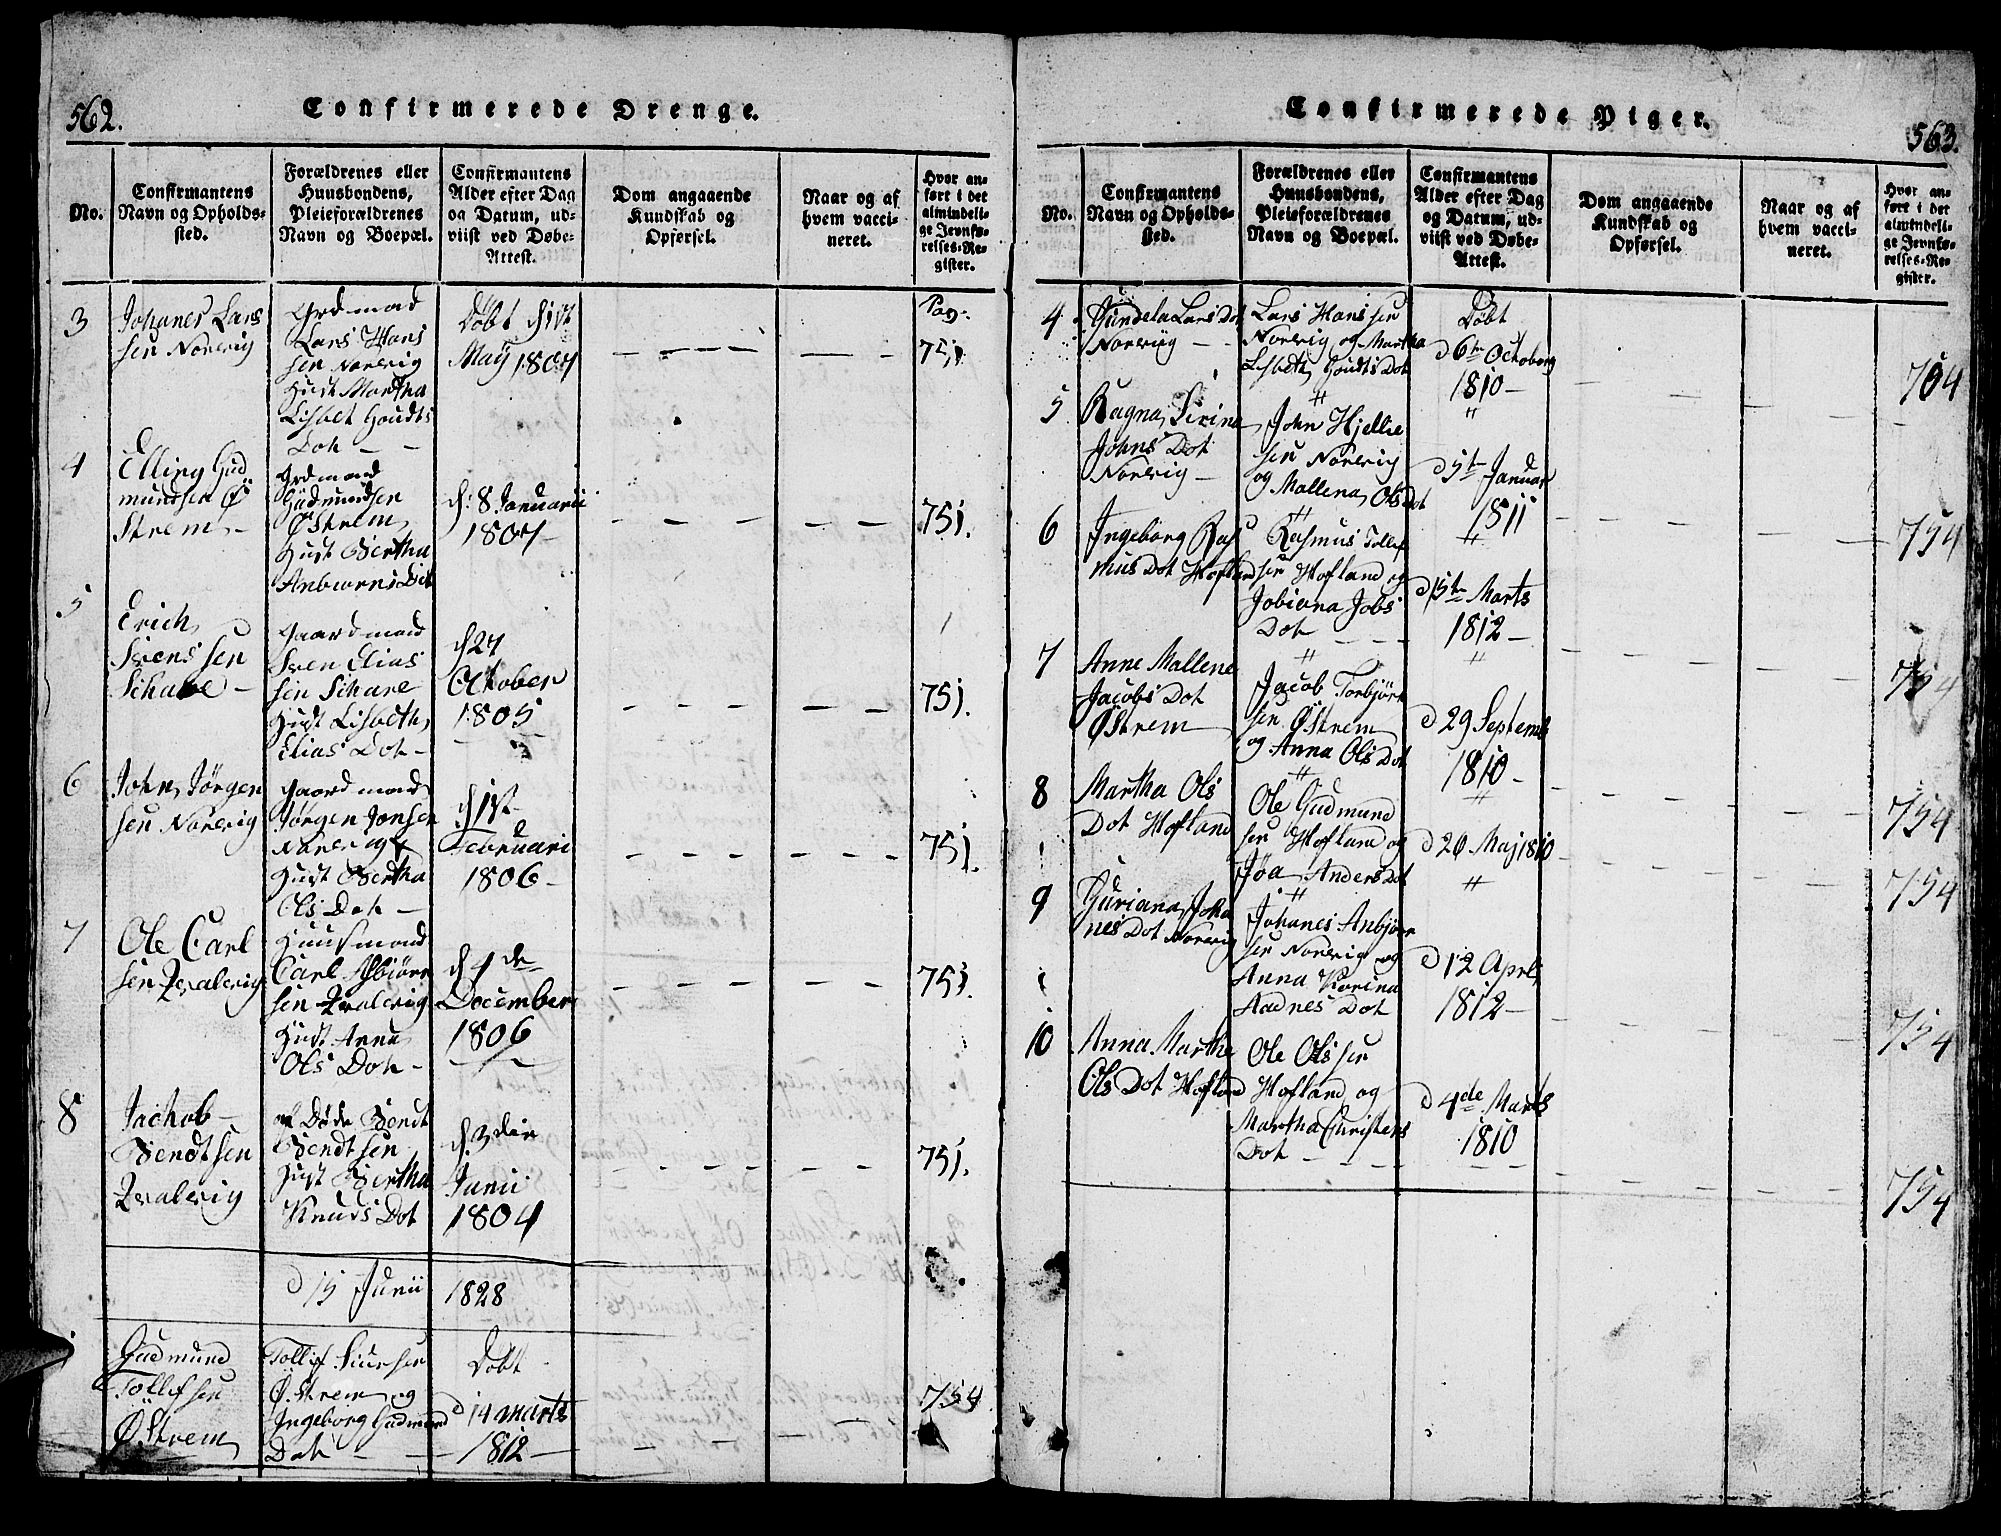 562.
Confirmerede Drenge.
No.
Confirmantens
Navn og Opholds-
sted.
Forældrenes eller
Huusbondens,
Pleieforældrenes
Navn og Boepæl.
Confirmantens
Alder efter Dag
og Datum, ud-
viist ved Døbe-
Attest.
Dom angaaende
Kundskab og
Opførsel.
Naar og af
hvem vacci-
neret.
Hvor an-
ført i det
almindeli-
ge Jevnfø-
relses-Re-
gister.
3
Johanes Lars
sen Norevig
Grdmand
Lars Hans
sen Norevig
Hust Martha
Lisbet Goudts
Dot
Døbt d 1st
May 1807
Pag.
751
4
Elling Gud
mundsen Ø
strem
Grdmand
Gudmundsen
Østrem
Hust Bertha
Anbiørns Dot
d. 8 Januarii
1807
751.
5
Erich
Svens sen
Schare
Gaardmand
Sven Elias
sen Schare
Hust Lisbeth
Elias Dot
d 27
October
1805
751.
6
John Jørgen
sen Norevig
Gaardmand
Jørgen Jonsen
Norevig
Hust Bertha
Ols Dot
d 1st
Februari
1806
751.
7
Ole Carl
sen Qvalevig
Huusmand
Carl Asbiørn
sen Qvalevig
Hust Anna
Ols Dot
d 4de
December
1806
751.
8
Jachob
Bendtsen
Qvalevig
af Døde Bendt
Bendtsen
Hust Bertha
Knuds Dot
d. 3die
Junii
1804
751.
d 15 Junii 1828
1
Gudmund
Tollefsen
Østrem
Tollef Siursen
Østrem og
Ingeborg Gudmund
Dot
Døbt
d 14 Marts
1812
754
Confirmerede Piger.
563.
No.
Confirmantens
Navn og Opholds-
sted.
Forældrenes eller
Huusbondens,
Pleieforældrenes
Navn og Boepæl.
Confirmantens
Alder efter Dag
og Datum, ud-
viist ved Døbe-
Attest.
Dom angaaende
Kundskab og
Opførsel.
Naar og af
hvem vacci-
neret.
Hvor an-
ført i det
almindeli-
ge Jevnfø-
relses-Re-
gister.
4
Gundela Lars Dot
Norevig
Lars Hans sen
Norevig og Martha
Lisbeth Goudts Dot
Døbt
d 6te Octoberg
1810
754
5
Ragna Serina
Johns Dot
Norevig
John Hjellie
sen Norevig
og Mallena Ols Dot
d 5te Januar
1811
754
6
Ingeborg Ras
mus Dot Hofland
Rasmus Tollef
sen Hofland og
Jobiana Jobs
Dot
d 15te Marts
1812
754
7
Anne Mallene
Jacobs Dot
Østrem
Jacob Torbjørn
sen Østrem
og Anna Ols Dot
d 29 Septemb
1810
754
8
Martha Ols
Dot Hofland
Ole Gudmund
sen Hofland og
Jøa Anders Dot
d 26 Maj 1810
754
9
Guriana Joha
nes Dot Norevig
Johanes Anbjørn
sen Norevig og
Anna Karina
Aadnes Dot
d 12 April
1812
754
10
Anna Marthe
Ols Dot Hofland
Ole Ols sen
Hofland og
Martha Christens
Dot
d 4de Marts
1810
754